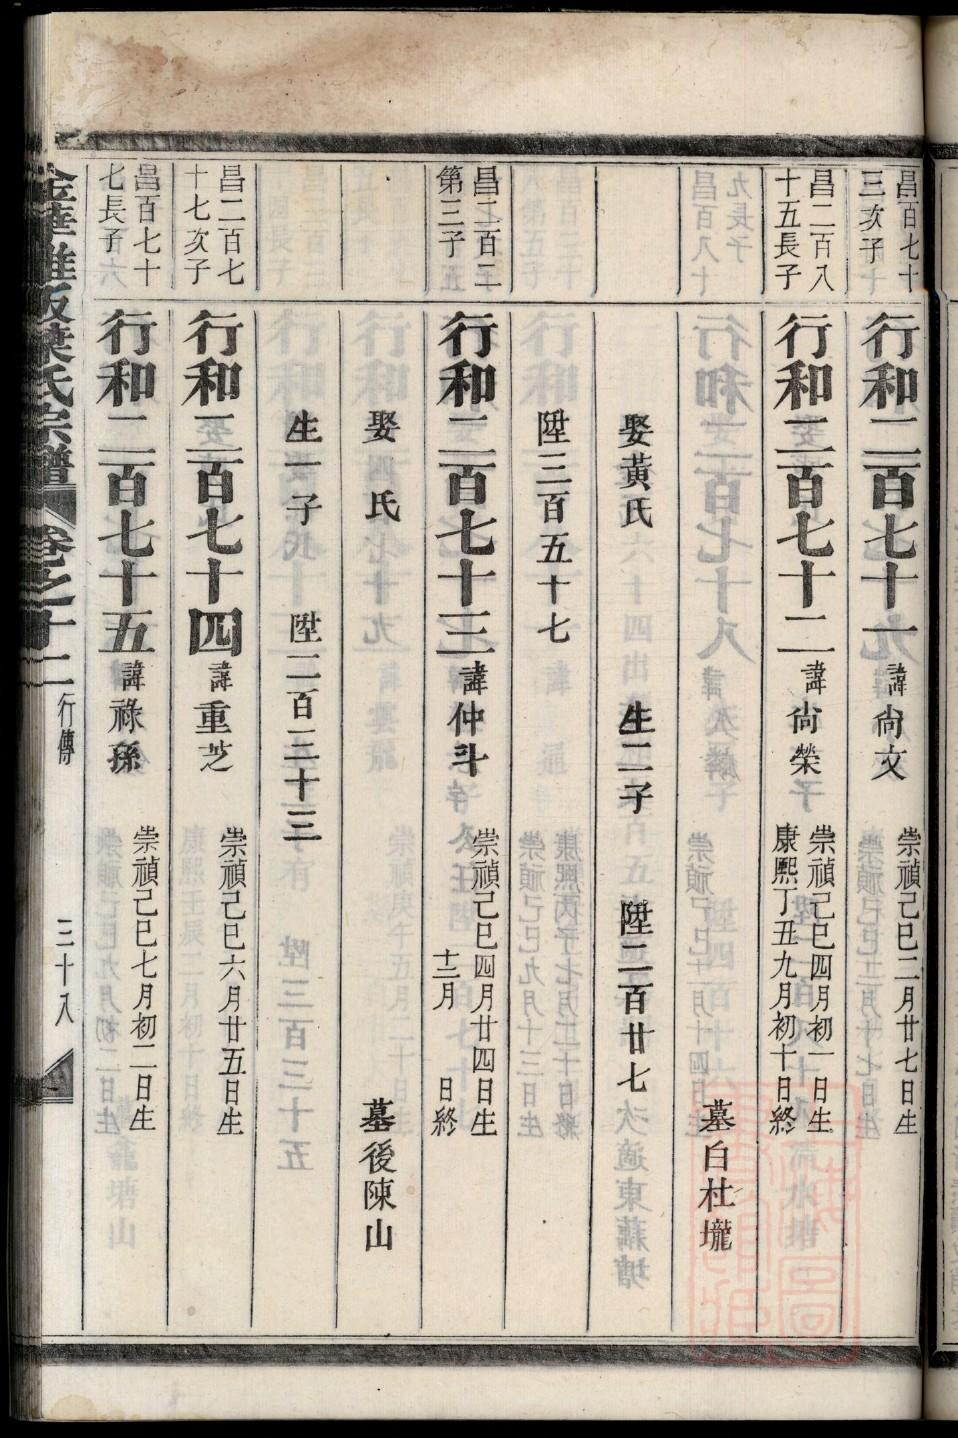 昌百七十
三次子
行和二百七十一 諱尙文
崇禎己巳二月廿七日生
昌二百八
十五長子
行和二百七十二 諱尙榮
崇禎己巳四月初一日生
康熙丁丑九月初十日終
墓白杜壠
娶黃氏 生二子 陞二百廿七
陞三百五十七
昌二百二
第三子
行和二百七十三 諱仲斗
崇禎己巳四月廿四日生
十二月 日終
娶 氏 墓後陳山
生一子 陞二百三十三
昌二百七
十七次子
行和二百七十四 諱重芝
崇禎己巳六月廿五日生
昌百七十
七長子
行和二百七十五 諱祿孫
崇禎己巳七月初二日生
葉氏宗譜 卷之十二 行傳 三十八